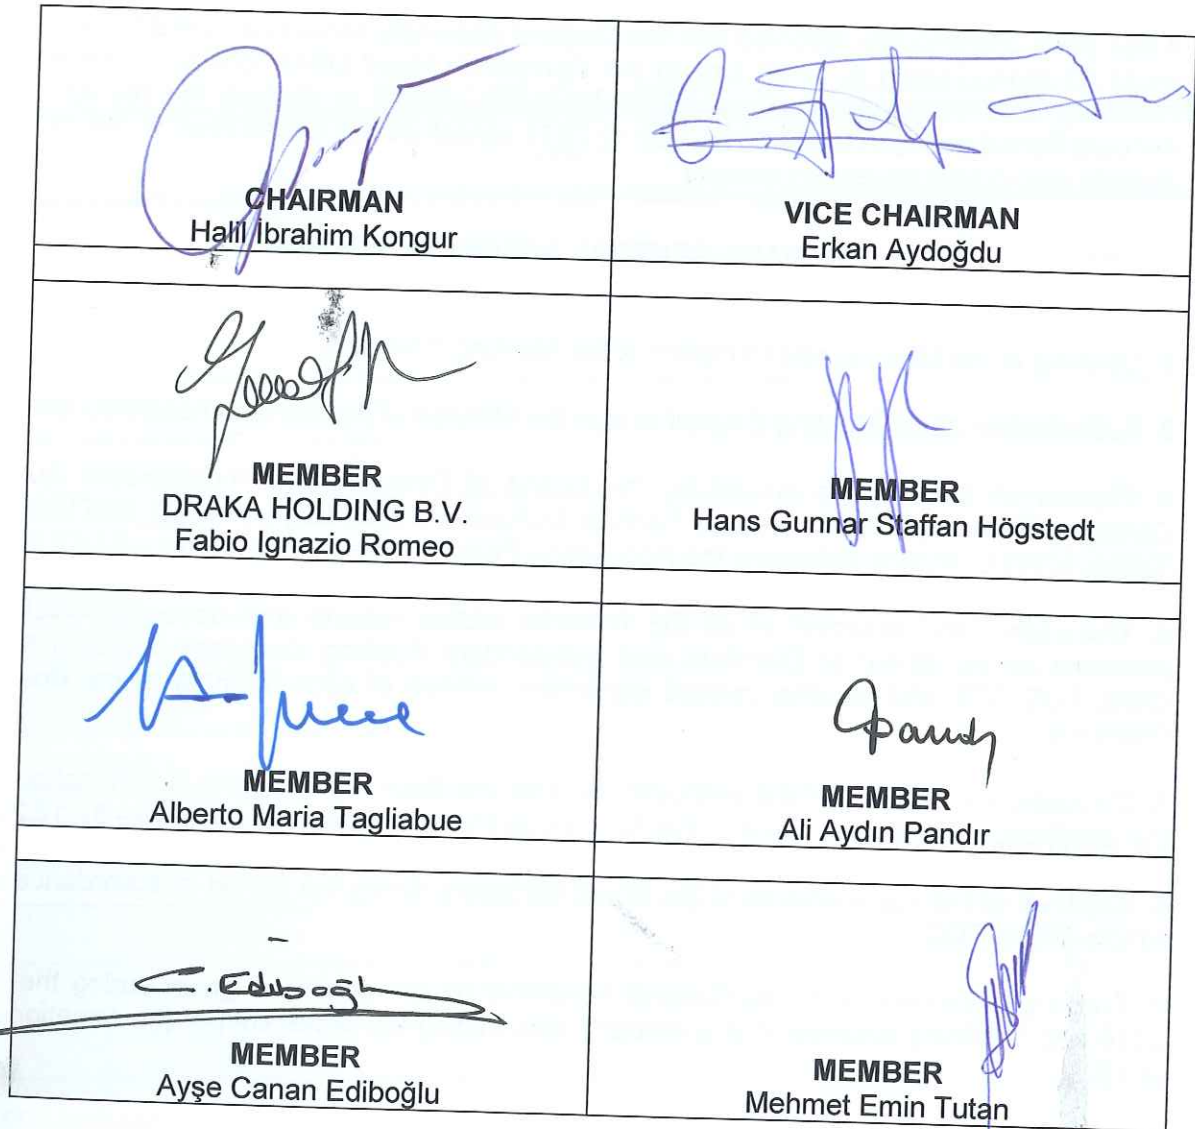 CHAIRMAN
Halil İbrahim Kongur
VICE CHAIRMAN
Erkan Aydoğdu
MEMBER
DRAKA HOLDING B.V.
Fabio Ignazio Romeo
MEMBER
Hans Gunnar Staffan Högstedt
MEMBER
Alberto Maria Tagliabue
MEMBER
Ali Aydın Pandır
C. Ediboğlu
MEMBER
Ayşe Canan Ediboğlu
MEMBER
Mehmet Emin Tutan